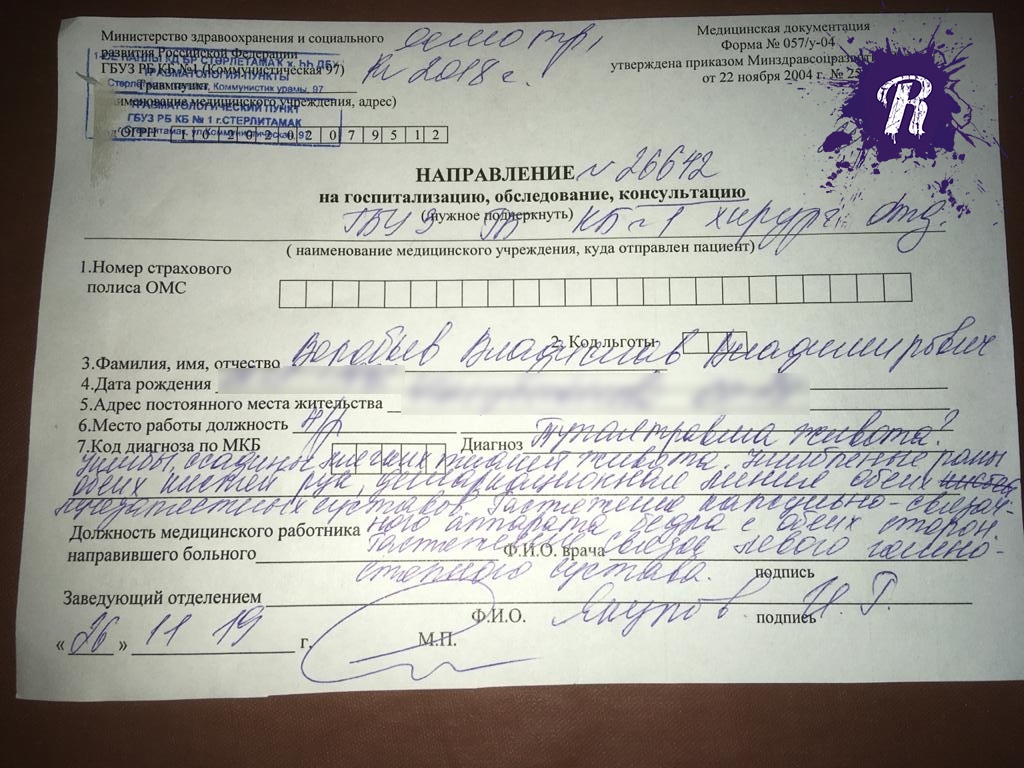 Министерство здравоохранения и социального
развития Российской Федерации
ГБУЗ РБ КБ №1 (Коммунистическая 97)
Травмпункт
наименование медицинского учреждения, адрес)
ТРАВМАТОЛОГИЯ ПУНКТЫ
Коммунистик урамы, 97
ТРАВМАТОЛОГИЧЕСКИЙ ПУНКТ
ГБУЗ РБ КБ № 1 г.СТЕРЛИТАМАК
г.Стерлитамак, ул.Коммунистическая 97
Код ОГРН 1 0 2 0 2 0 2 0 7 9 5 1 2
осмотр,
2018 г.
Медицинская документация
Форма № 057/у-04
утверждена приказом Минздравсоцразвит
от 22 ноября 2004 г. № 25
R
НАПРАВЛЕНИЕ N 26642
на госпитализацию, обследование, консультацию
(нужное подчеркнуть)
ГБУЗ РБ КБ №1 хирург. отд.
( наименование медицинского учреждения, куда отправлен пациент)
1.Номер страхового
полиса ОМС
2. Код льготы
3.Фамилия, имя, отчество Воробьев Владислав Владимирович
4.Дата рождения
5.Адрес постоянного места жительства
6.Место работы должность н/р
7.Код диагноза по МКБ Диагноз Тупая травма живота?
Ушибы, ссадины мягких тканей живота. Ушибленные раны
обеих кистей рук, обеих
лучезапястных суставов. Растяжение капсульно-связоч-
ного аппарата бедра с обеих сторон.
Должность медицинского работника
направившего больного Ф.И.О. врача
Растяжение связок левого голено-
стопного сустава.
подпись
Заведующий отделением
Ф.И.О. Якупов И.Г. подпись
« 26 » 11 19 г. М.П.